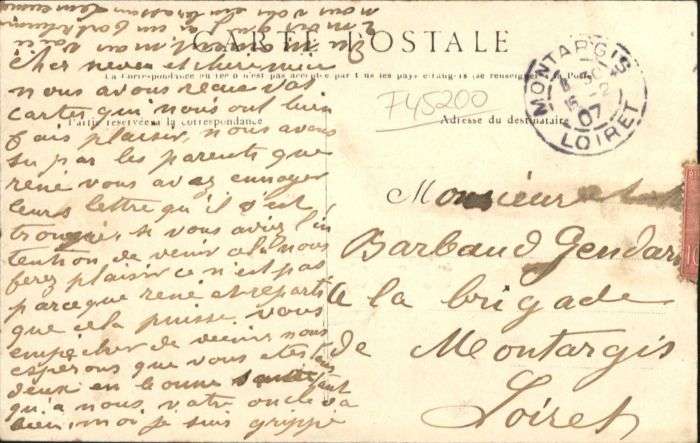 CARTE POSTALE
La Correspondance au recto n'est pas acceptée par tous les pays étrangers (se renseigner à la Poste)
Partie réservée à la correspondance
Adresse du destinataire
F45200
MONTARGIS
15
2
07
LOIRET
Cher neveu et chere niece
nous avons recue vos
cartes qui nous ont bien
fais plaisir, nous avons
su par les parents que
rené vous avez envoyer
leurs lettre qu'il s'est
trompé, si vous aviez l'in
tention de venir cela nous
ferez plaisir ce n'est pas
parce que rené et reparti
que cela puisse vous
empecher de venir nous
esperons que vous etes tous
deux en bonne santé
qu'a nous, votre oncle va
bien moi je suis grippé
Monsieur
Barbaud Gendar
de la brigade
de Montargis
Loiret